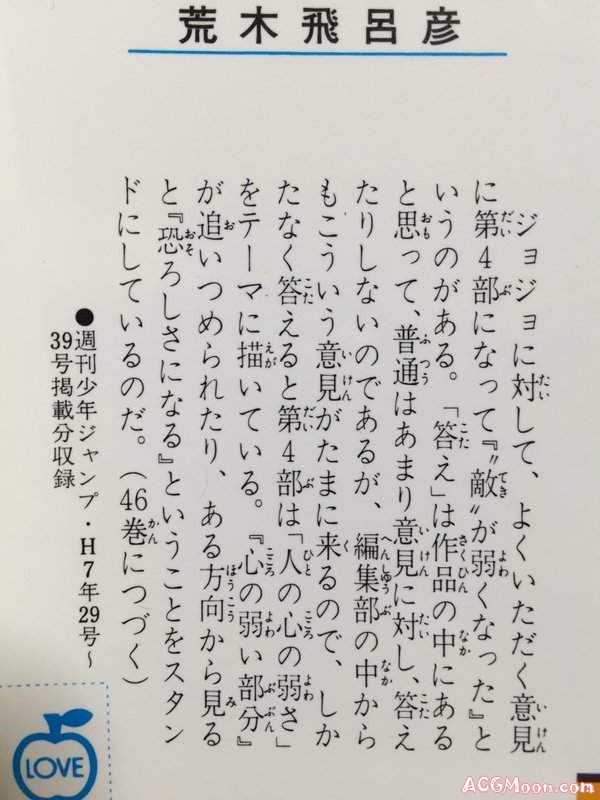 荒木飛呂彦
ジョジョに対して、よくいただく意見
に第4部になって『〝敵〟が弱くなった』と
いうのがある。「答え」は作品の中にある
と思って、普通はあまり意見に対し、答え
たりしないのであるが、編集部の中から
もこういう意見がたまに来るので、しか
たなく答えると第4部は「人の心の弱さ」
をテーマに描いている。『心の弱い部分』
が追いつめられたり、ある方向から見る
と『恐ろしさになる』ということをスタン
ドにしているのだ。(46巻につづく)
●週刊少年ジャンプ・H7年29号〜
39号掲載分収録
LOVE
ACGMoon.com